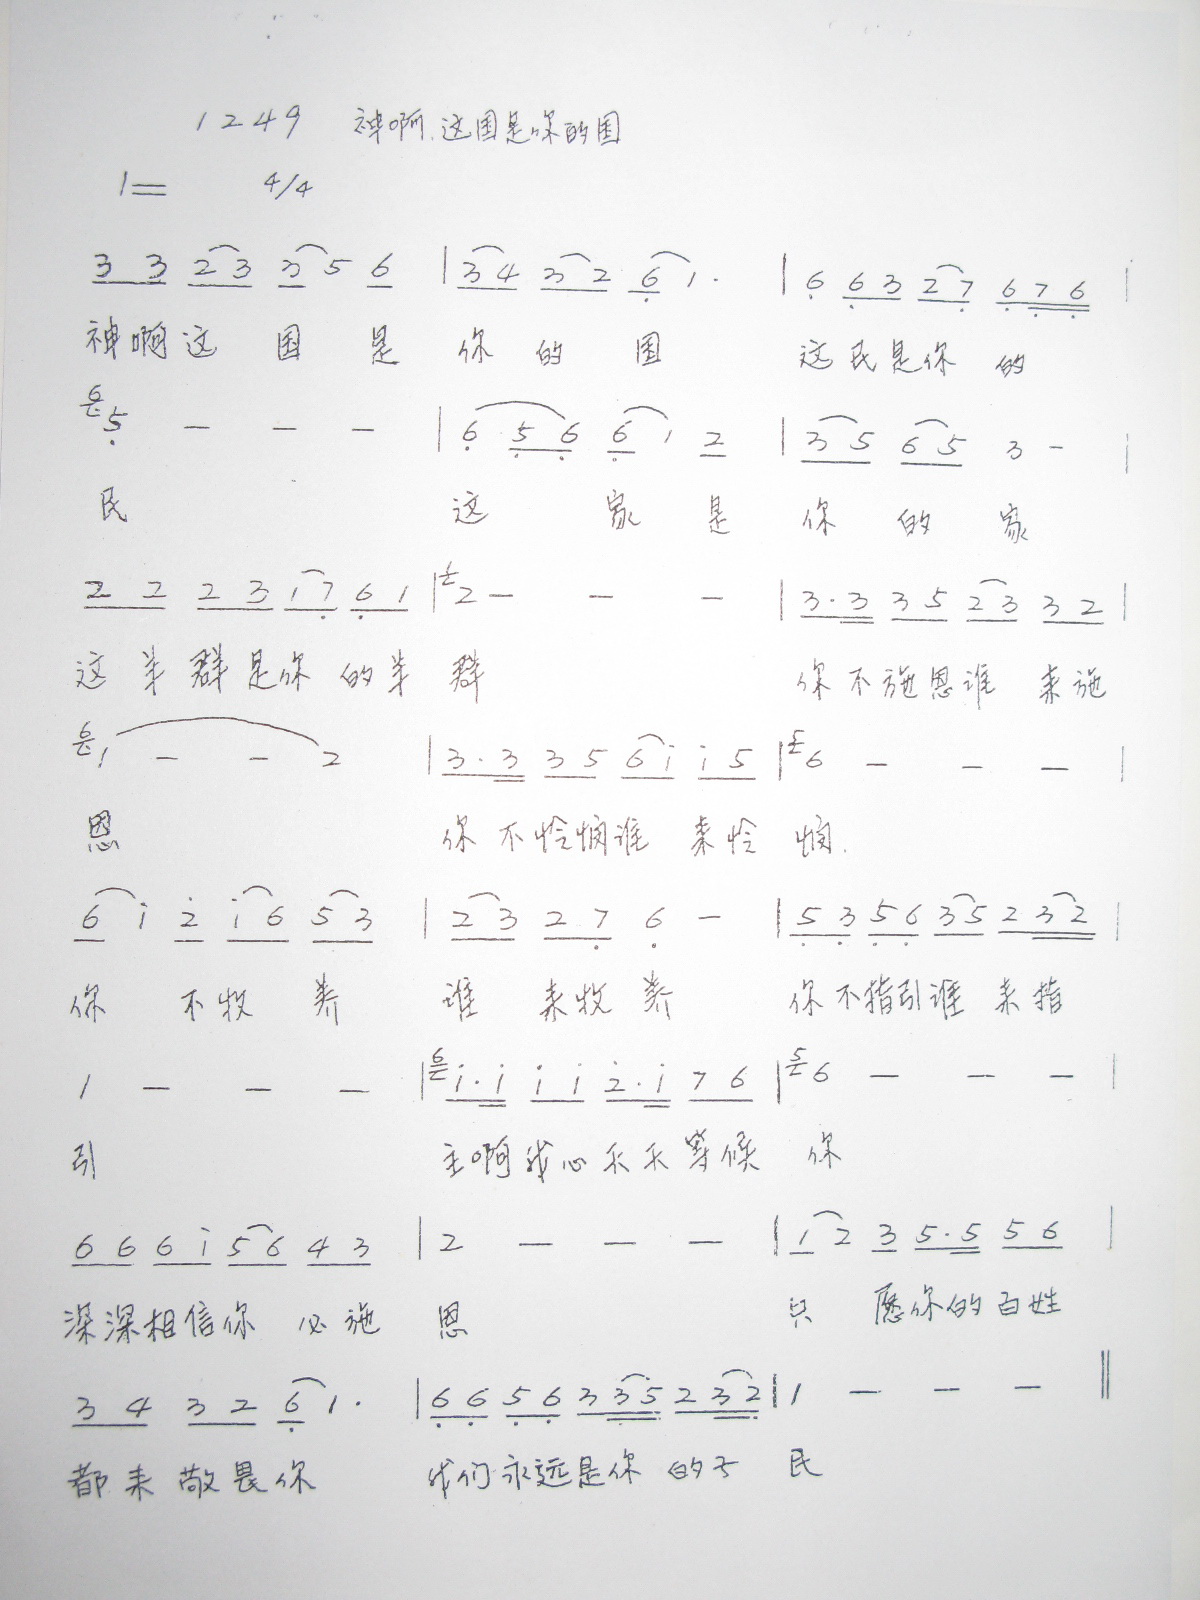 1249 神啊.这国是你的国
1= 4/4
3 3 2 3 3 5 6 | 3 4 3 2 6 1 · | 6 6 3 2 7 6 7 6 |
神啊这 国 是 你 的 国 这民是你 的
6 5 — — — | 6 5 6 6 1 2 | 3 5 6 5 3 - |
民 这 家 是 你 的 家
2 2 2 3 1 7 6 1 | 1 2 — — — | 3 · 3 3 5 2 3 3 2 |
这羊群是你 的羊 群 你不施恩谁 来施
6 1 — — 2 | 3 · 3 3 5 6 i i 5 | 5 6 — — — |
恩 你不怜悯谁 来怜 悯.
6 i 2 i 6 5 3 | 2 3 2 7 6 — | 5 3 5 6 3 5 2 3 2 |
你 不牧 养 谁 来牧 养 你不指引谁 来指
1 — — — | 6 i · i i i 2 · i 7 6 | 5 6 — — — |
引 主啊我心天天等候 你
6 6 6 i 5 6 4 3 | 2 — — — | 1 2 3 5 · 5 5 6 |
深深相信你 必施 恩 只 愿你的百姓
3 4 3 2 6 1 · | 6 6 5 6 3 3 5 2 3 2 | 1 — — — ‖
都来 敬畏你 我们永远是你 的子 民